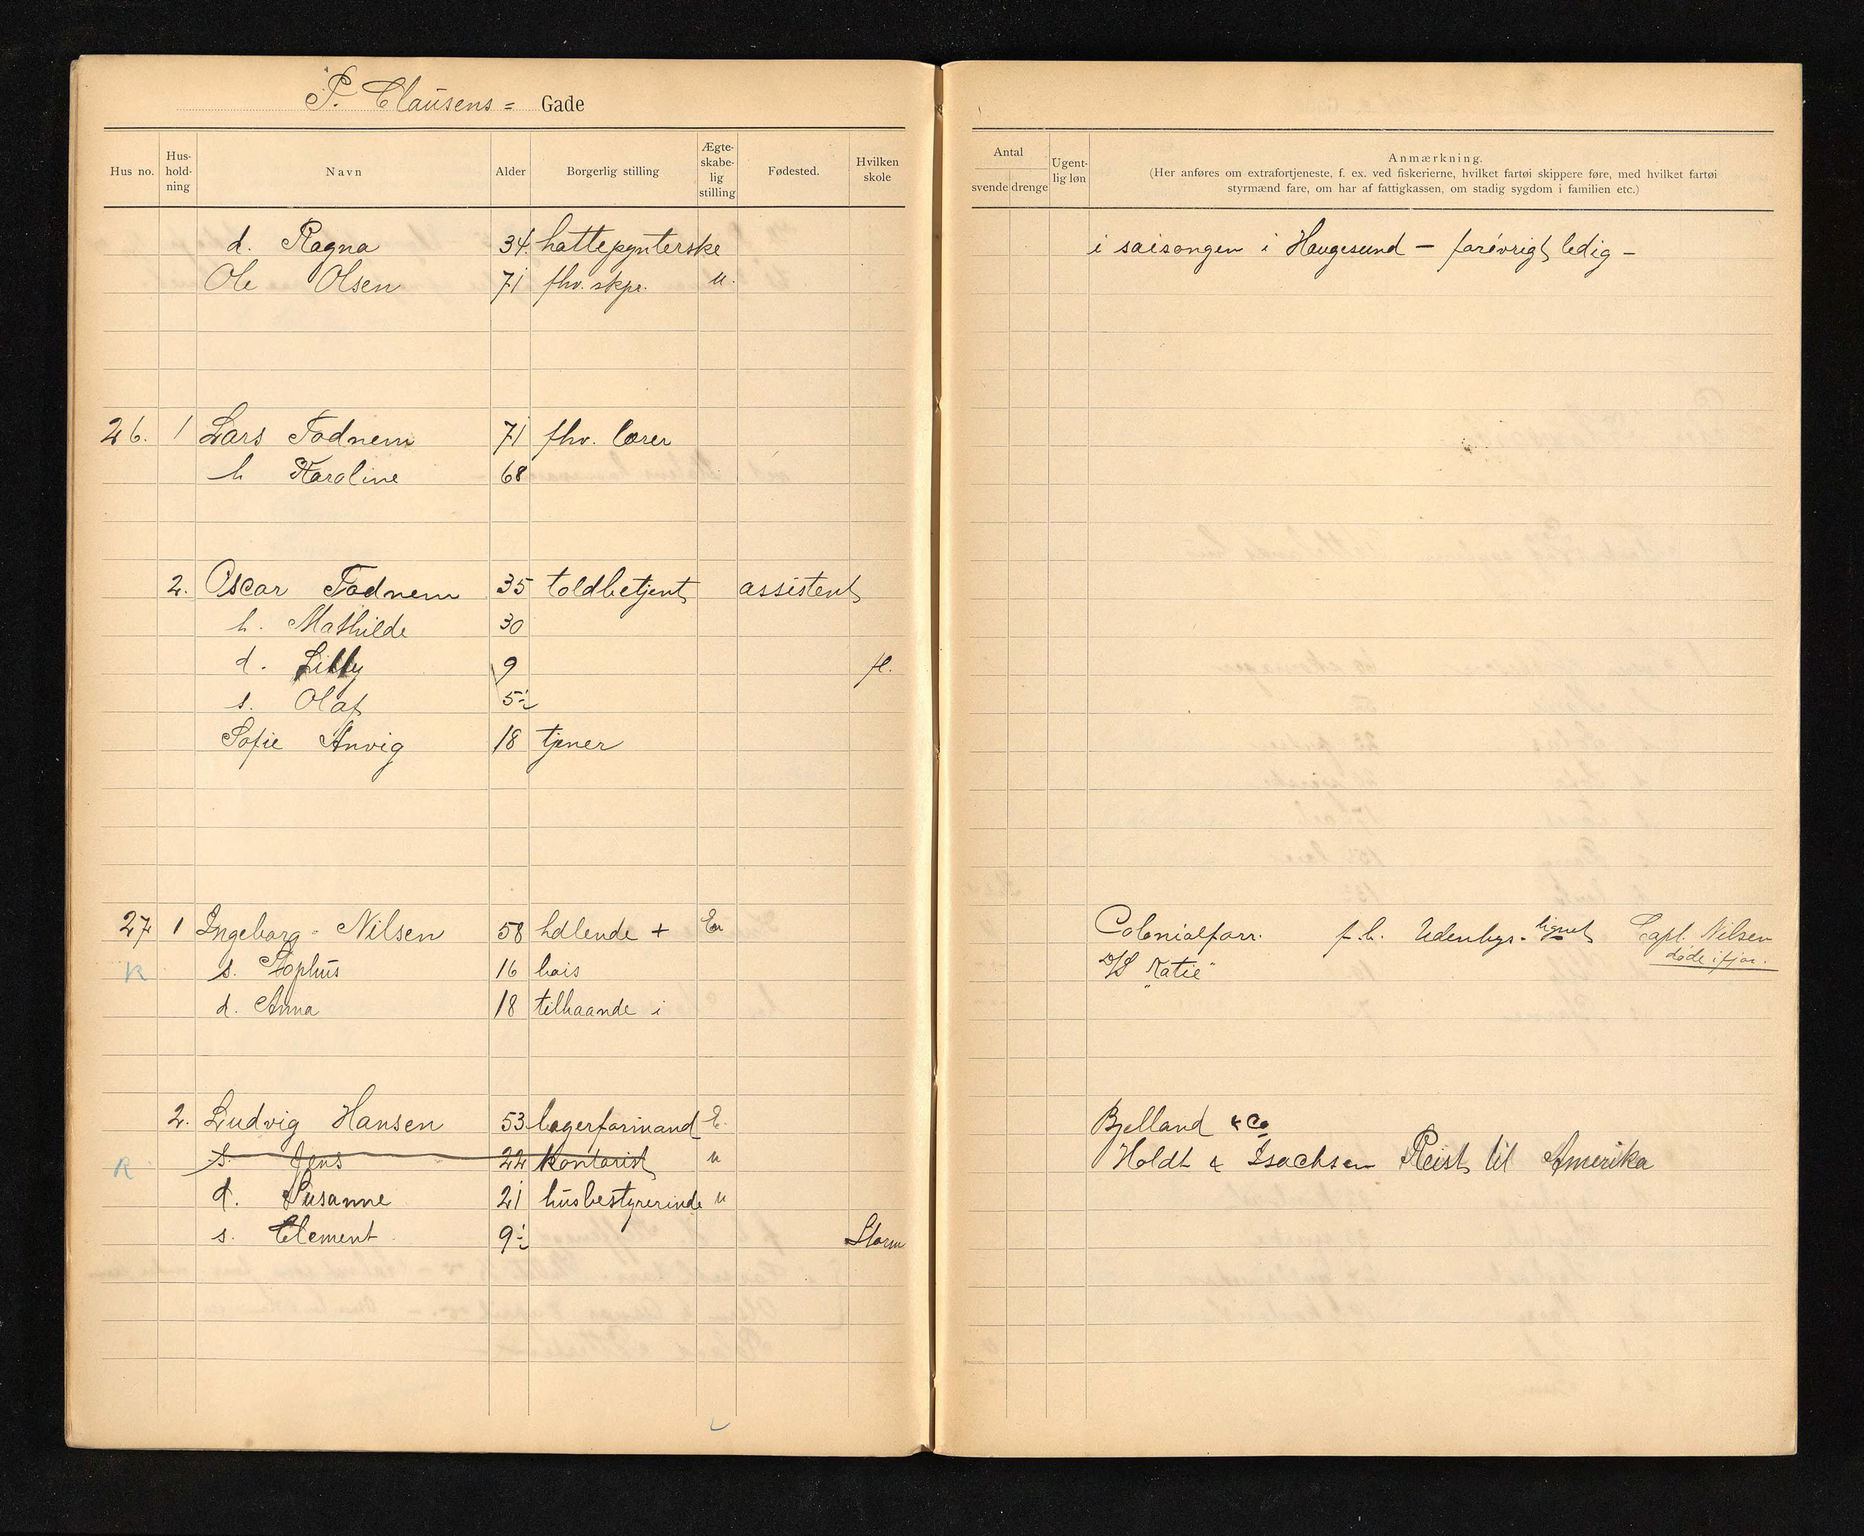 P. Clausens = Gade
Hus no. Hus-hold-ning Navn Alder Borgerlig stilling Ægte-skabe-lig stilling Fødested. Hvilken skole
Antal svende drenge Ugent-lig løn Anmærkning.
(Her anføres om extrafortjeneste, f. ex. ved fiskerierne, hvilket fartøi skippere føre, med hvilket fartøi
styrmænd fare, om har af fattigkassen, om stadig sygdom i familien etc.)
d. Ragna 34. hattepynterske i saisongen i Haugesund – forøvrigt ledig –
Ole Olsen 71 fhv. skpr. u.
26. 1 Lars Todnem 71 fhv. lærer
h Karoline 68
2. Oscar Todnem 35 toldbetjent assistent
h. Mathilde 30
d. Lilly 9 fl.
s. Olaf 5½
Sofie Anvig 18 tjener
27 1 Ingeborg Nilsen 58 hdlende + En Colonialforr. f. h. Udenbys. lignet Capt. Nilsen
døde i fjor.
R s. Sophus 16 bois D/S "Katie"
d. Anna 18 tilhaande i
2. Ludvig Hansen 53 lagerformand E. Bjelland & Co
R s. Jens 22 kontorist u Holdt & Isachsen Reist til Amerika
d. Susanne 21 husbestyrerinde u
s. Clement 9½ Storm